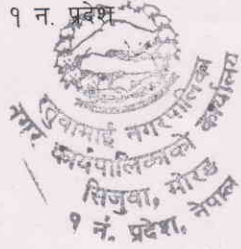 १ न. प्रदेश
रतुवामाई नगरपालिका
नगर कार्यपालिकाको कार्यालय
सिजुवा, मोरङ
१ नं. प्रदेश, नेपाल